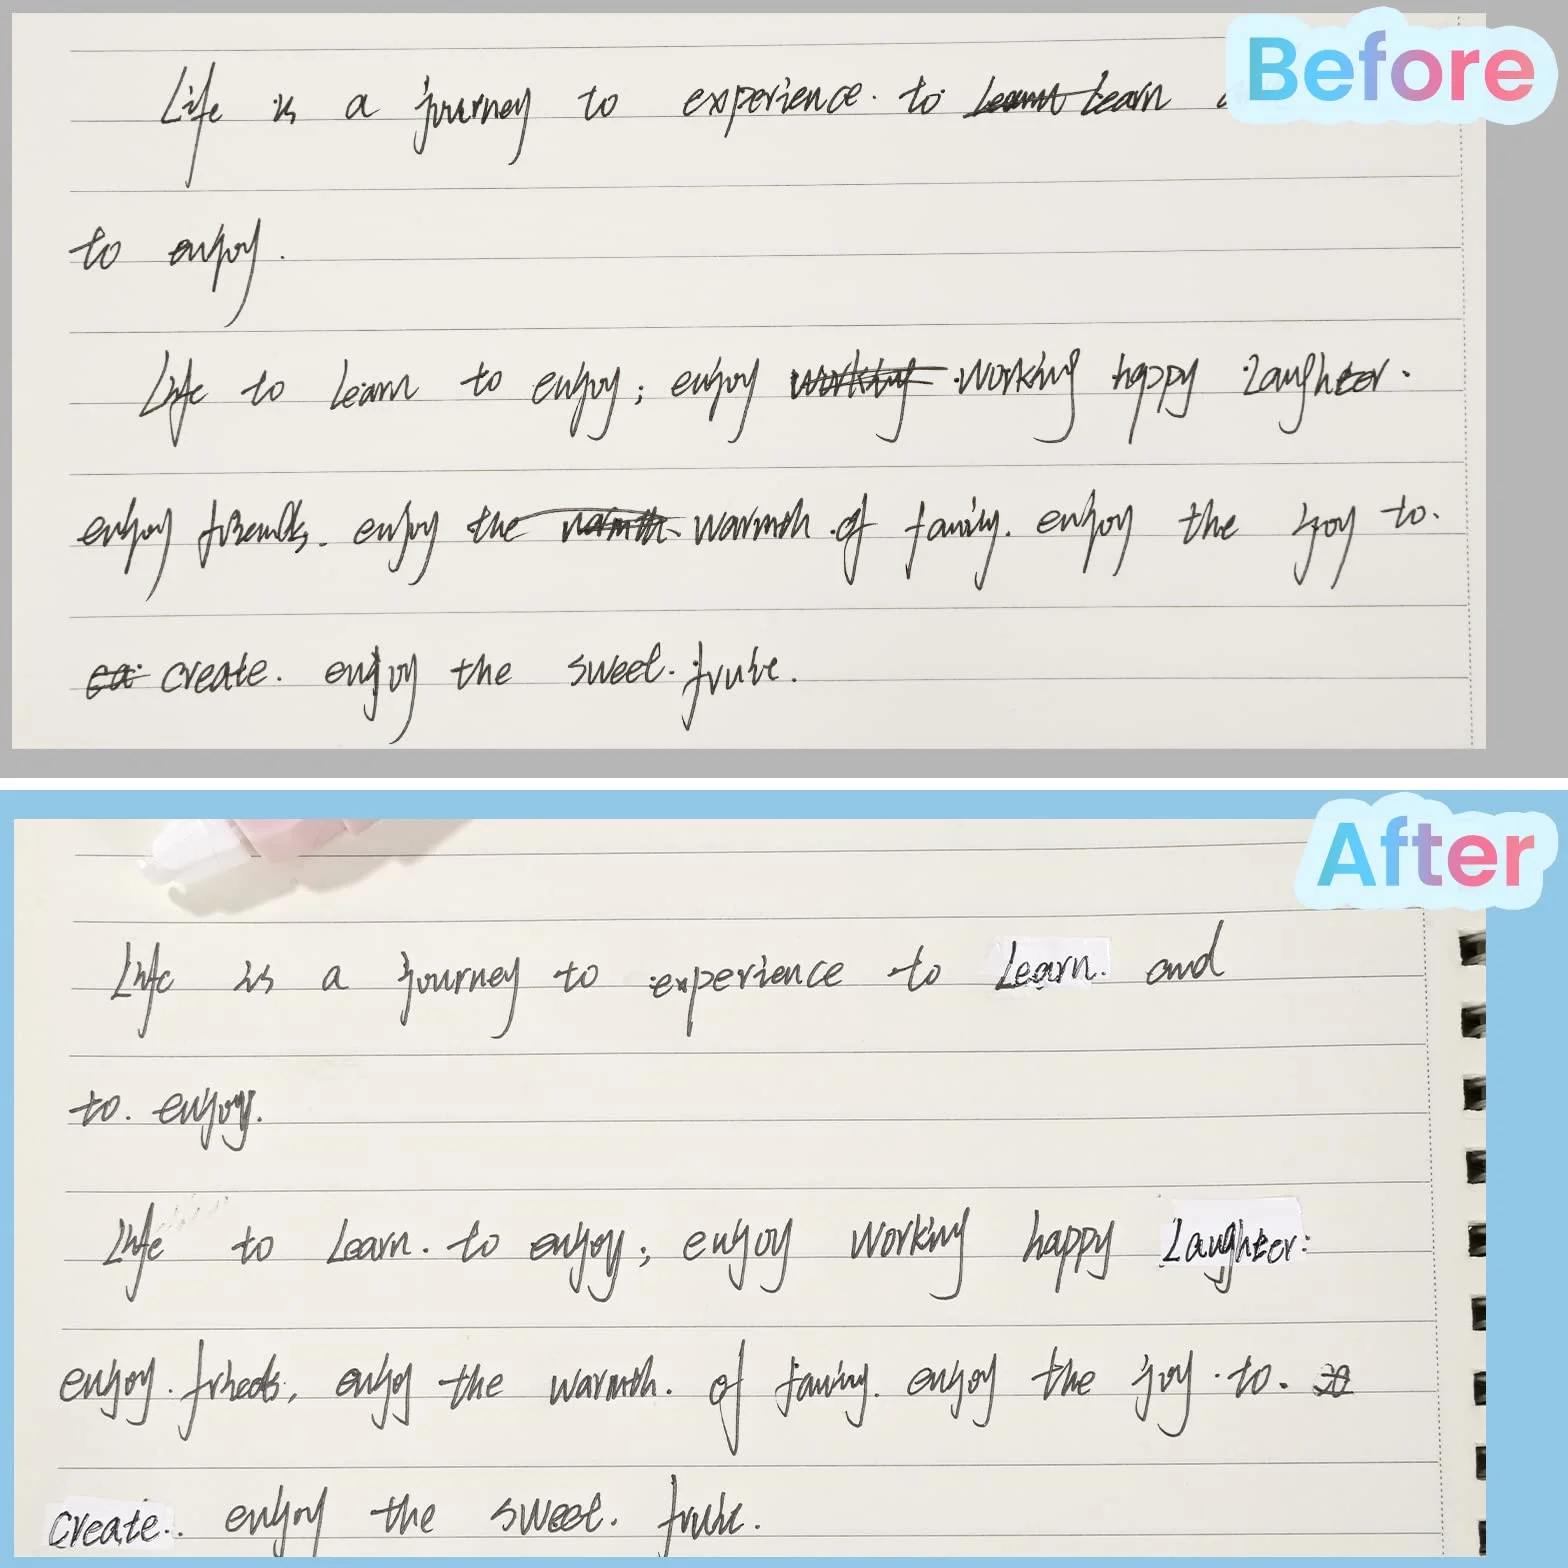 Before
Life is a journey to experience. to Learn
to enjoy.
Life to Learn to enjoy; enjoy working working happy Laughter.
enjoy friends. enjoy the warmth warmth of family. enjoy the joy to.
create. enjoy the sweet. fruit.
After
Life is a journey to experience to Learn. and
to. enjoy.
Life to Learn. to enjoy; enjoy working happy Laughter:
enjoy. friends, enjoy the warmth. of family. enjoy the joy. to.
Create.. enjoy the sweet. fruit.